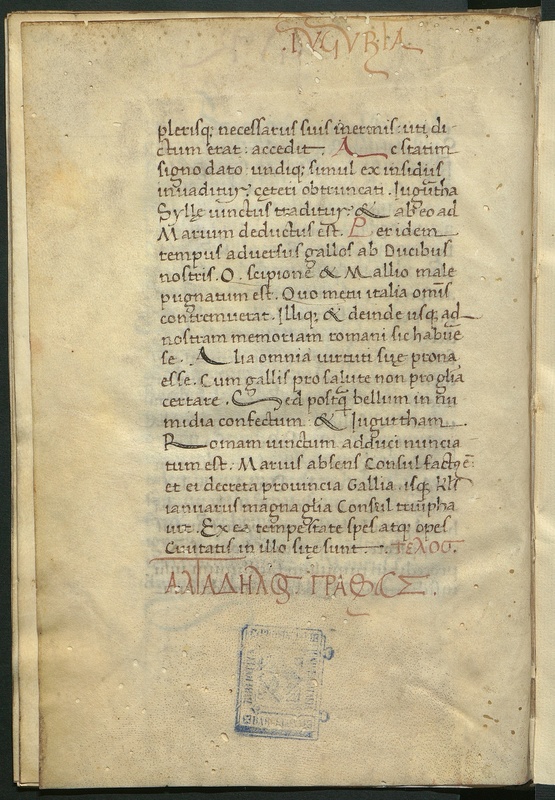 IVGVRTA
plerisq; necessariis suis inermis: uti di-
ctum erat: accedit. Ac statim
signo dato undiq; simul ex insidiis
inuaditur: ceteri obtruncati. Iugurtha
Sylle uinctus traditur: & ab eo ad
Marium deductus est. Per idem
tempus aduersus gallos ab Ducibus
nostris. Q. scipione & Mallio male
pugnatum est. Quo metu italia omis̄
contremuerat. Illiq; & deinde usq; ad
nostram memoriam romani sic habue
re. Alia omnia uirtuti sue prona
esse. Cum gallis pro salute non pro glia
certare. Sed postq̃ bellum in nu
midia confectum & Iugurtham
Romam uinctum adduci nuncia
tum est. Marius absens Consul factus ē:
et ei decreta prouincia Gallia. isq; kl'
ianuariis magna glia Consul triumpha
uit. Ex ea tempestate spes atq; opes
Ciuitatis in illo site sunt. ΤΕΛΟΣ.